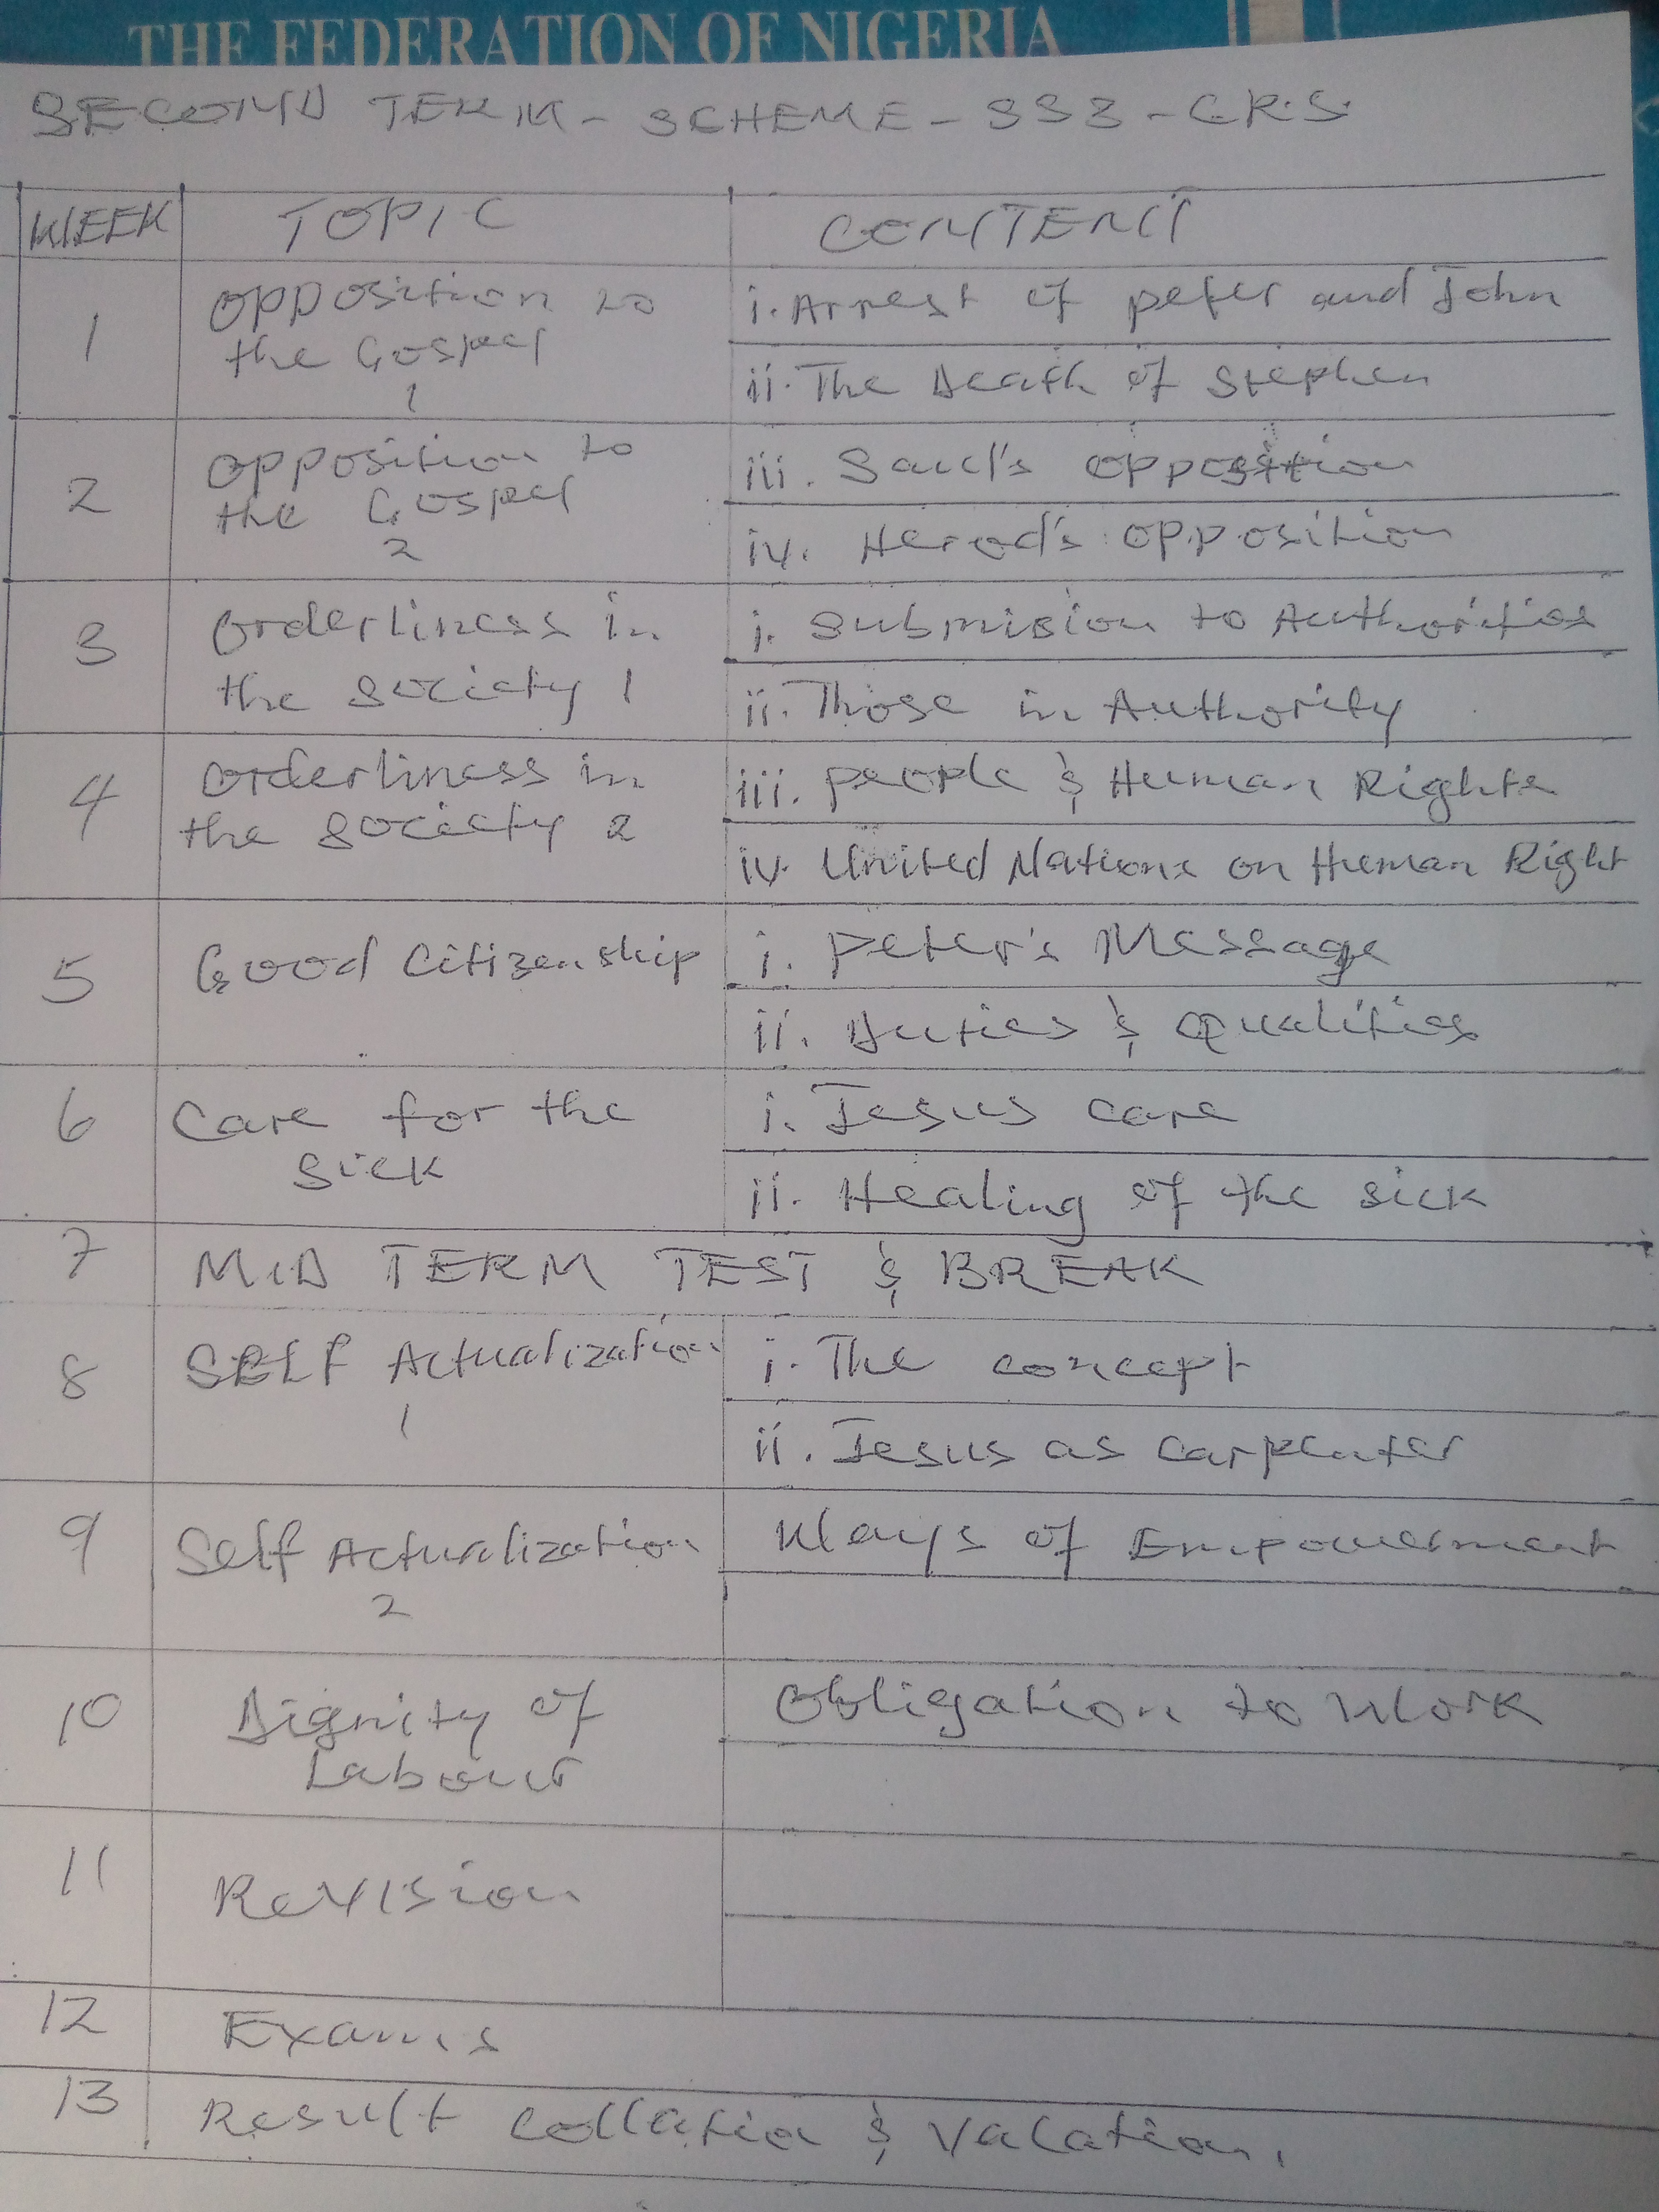 THE FEDERATION OF NIGERIA
SECOND TERM - SCHEME - SS3 - C.R.S.
WEEK TOPIC CONTENT
1 Opposition to the Gospel 1
i. Arrest of peter and John
ii. The Death of Stephen
2 Opposition to the Gospel 2
iii. Saul's opposition
iv. Herod's opposition
3 Orderliness in the society 1
i. Submision to Authorities
ii. Those in Authority
4 Orderliness in the society 2
iii. people & Human Rights
iv. United Nations on Human Right
5 Good Citizenship
i. Peter's Message
ii. Duties & Qualities
6 Care for the sick
i. Jesus care
ii. Healing of the sick
7 MID TERM TEST & BREAK
8 SELF Actualization 1
i. The concept
ii. Jesus as Carpenter
9 Self Actualization 2
Ways of Empowerment
10 Dignity of Labour
Obligation to Work
11 Revision
12 Exams
13 Result Collation & Vacation.